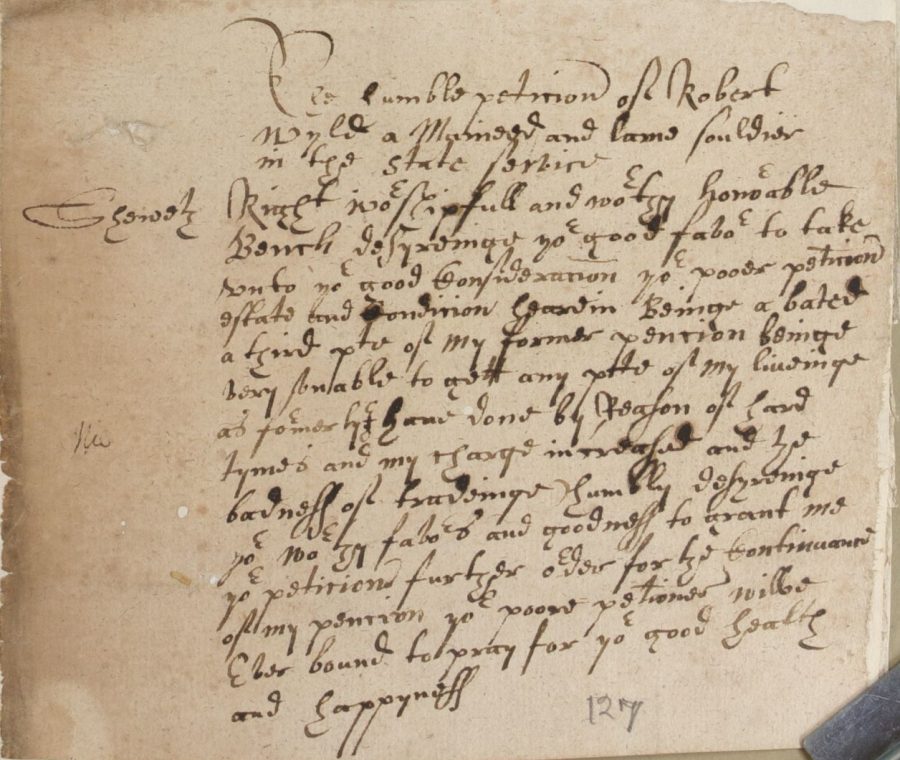 The humble peticion of Robert
Wyld a Maineed and lame souldier
in the State service
Sheweth Right Worshipfull and worthy honorable
Bench desyreinge yor good favor to take
unto yor good Consideracion yor pooer peticion
estate and Condicion heardin Beinge a bated
a third pte of my former pencion beinge
very unable to gett any ptte of my liveinge
as formerly I have done by Reason of hard
tymes and my charge increased and the
badness of tradeinge humbly desyreinge
yor worthy favors and goodness to grant me
yor peticionr further order for the Continuance
of my pencion yor poore petioner wilbe
Ever bound to pray for yor good health
and happyness
127